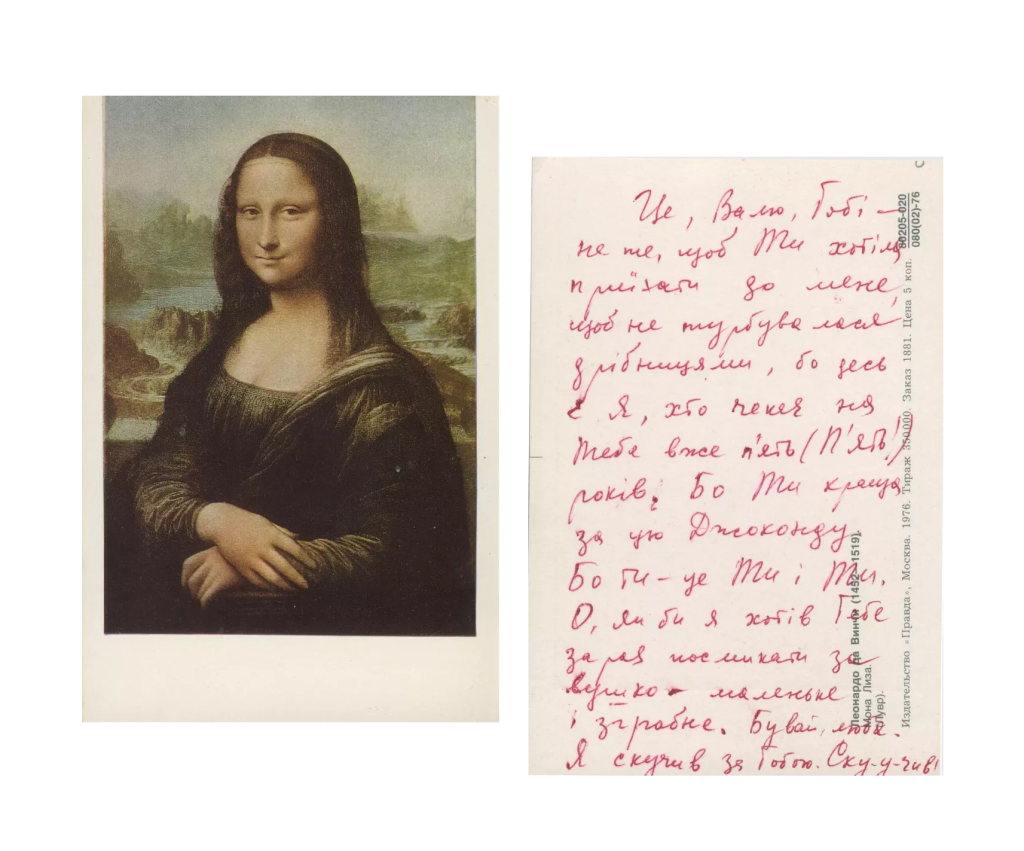 Це, Валю, Тобі –
не те, щоб Ти хотіла
приїхати до мене,
щоб не турбувалася
дрібницями, бо десь
є Я, хто чекає на
Тебе вже п'ять (П'ять!)
років. Бо Ти краща
за цю Джоконду.
Бо ти – це Ти і Ти.
О, як би я хотів Тебе
зараз посмикати за
вушко – маленьке
і зграбне. Бувай, люба.
Я скучив за Тобою. Ску-у-чив!
Леонардо да Винчи (1452–1519).
Мона Лиза.
(Лувр).
Издательство «Правда», Москва. 1976. Тираж 350 000. Заказ 1881. Цена 5 коп.
80205-020
080(02)-76
С